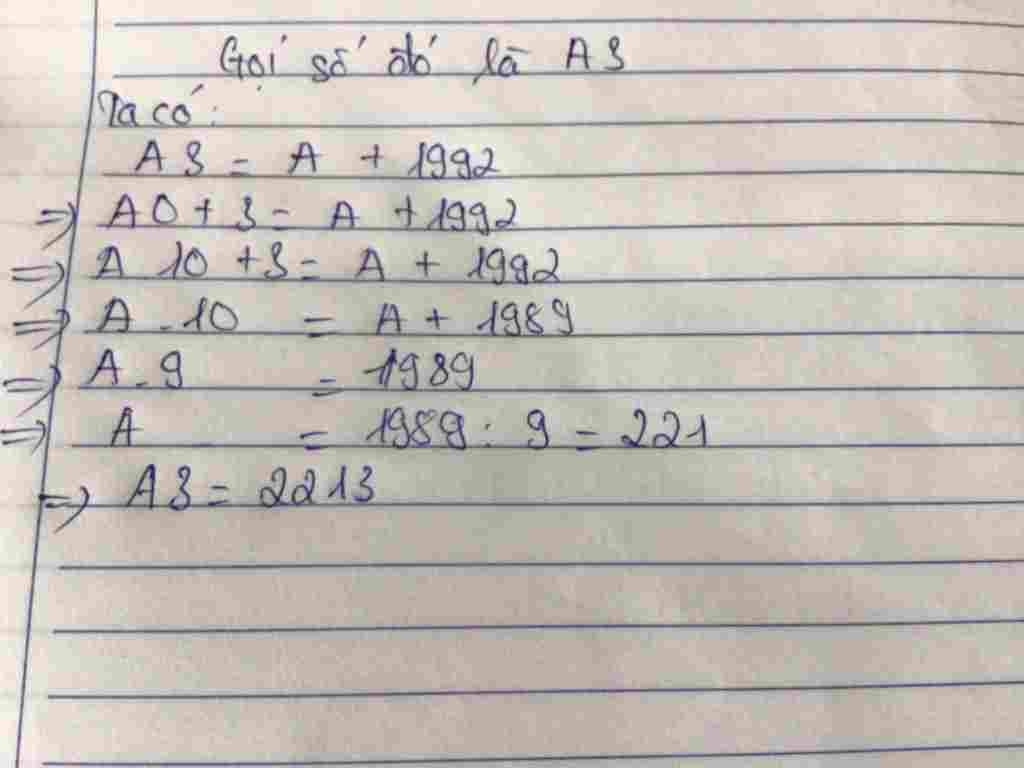 Gọi số đó là A3
Ta có:
A3 = A + 1992
=> A0 + 3 = A + 1992
=> A 10 + 3 = A + 1992
=> A . 10 = A + 1989
=> A . 9 = 1989
=> A = 1989 : 9 = 221
=> A3 = 2213